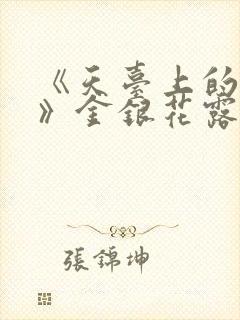 《天臺上的
》金銀花露
張錦坤